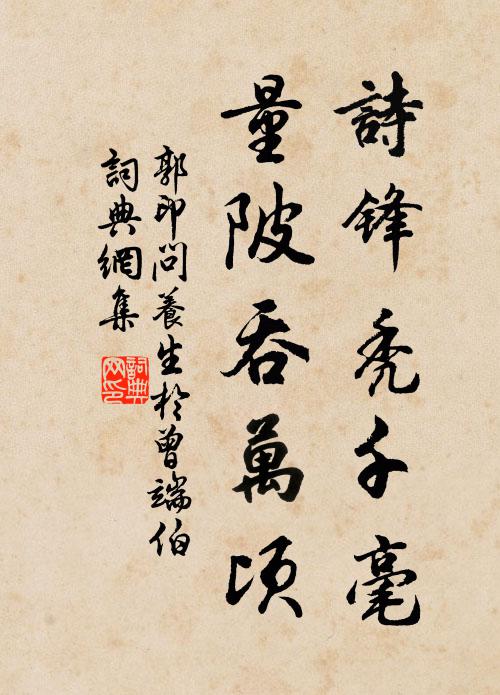 詩鋒禿千毫
量陂吞萬頃
郭印問養生於曾端伯
詞典網集
詞典
网印